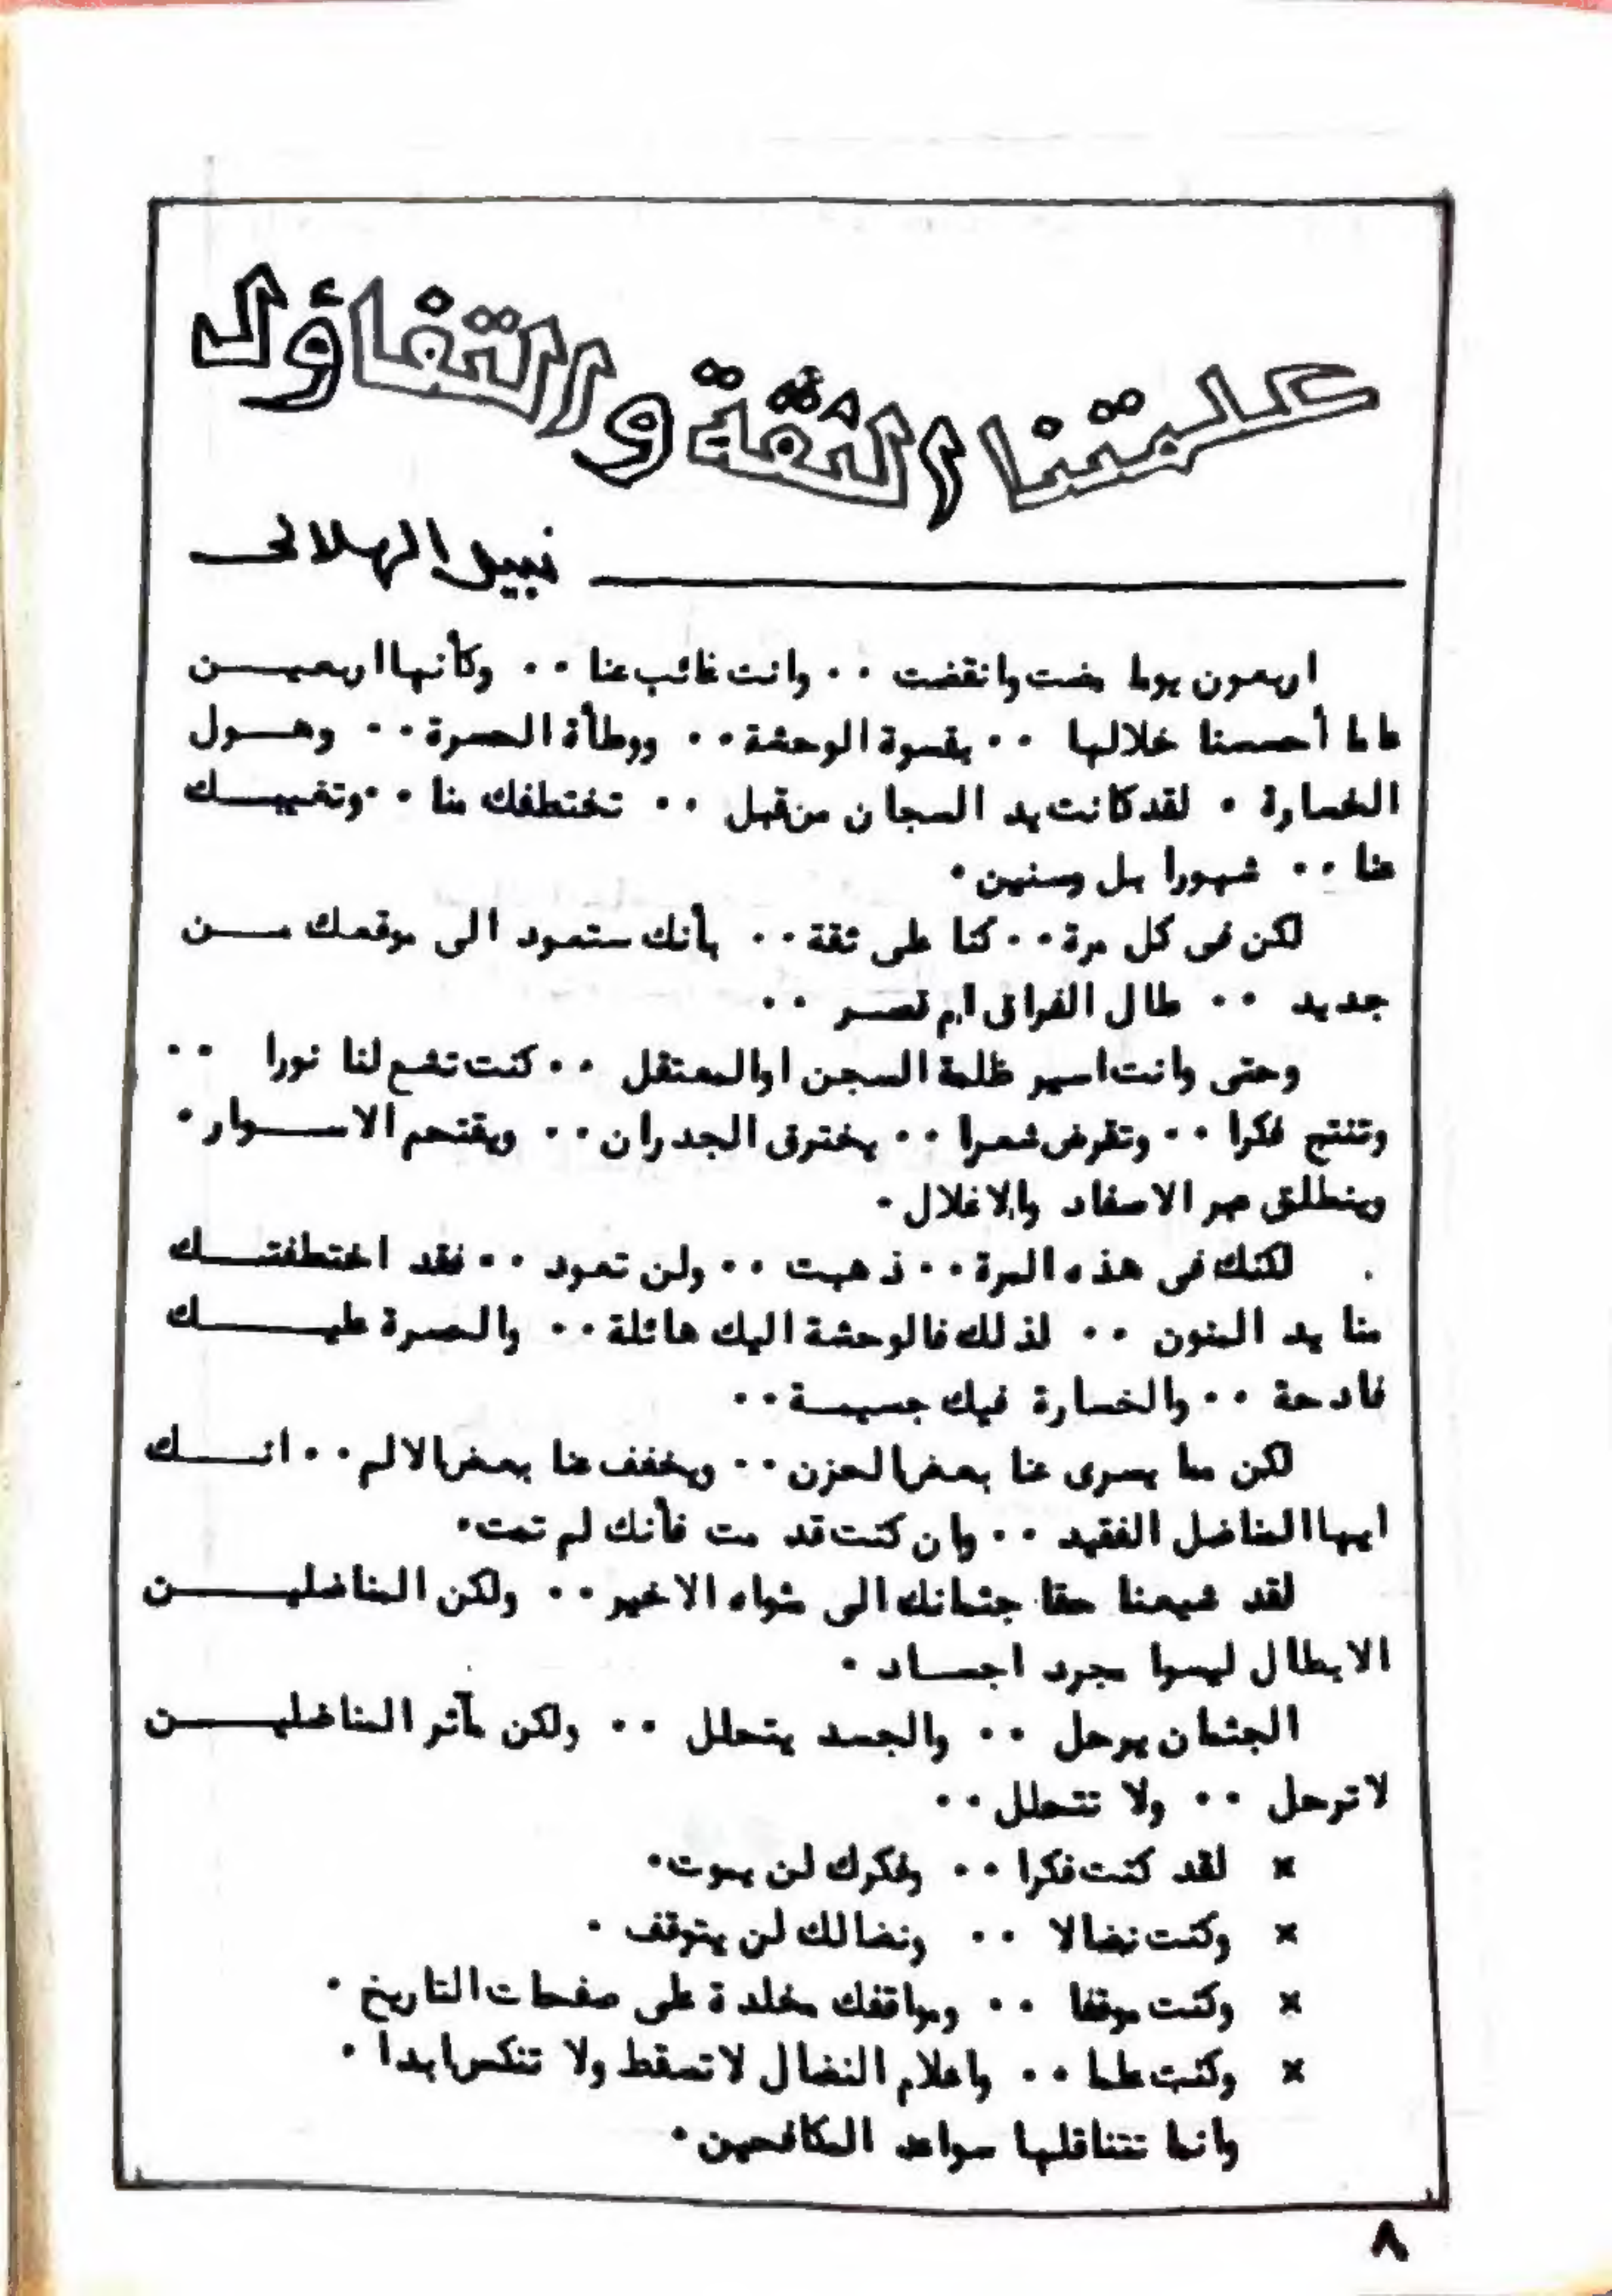 كلمتنا الثقة والتفاؤل
نبيل الهلالى
اربعون يوما مضت وانقضت ٠٠ وانت غائب عنا ٠٠ وكأنها اربعيـــن
عاما أحسسنا خلالها ٠٠ بقسوة الوحشة ٠٠ ووطأة الحسرة ٠٠ وهـــول
الخسارة ٠ لقد كانت يد السجان من قبل ٠٠ تختطفك منا ٠٠ وتغيبـــك
عنا ٠٠ شهورا بل وسنين ٠
لكن فى كل مرة ٠٠ كنا على ثقة ٠٠ بأنك ستعود الى موقعك مـــن
جديد ٠٠ طال الفراق ام قصــر ٠٠
وحتى وانت اسير ظلمة السجن او المعتقل ٠٠ كنت تشع لنا نورا ٠٠
وتنتج فكرا ٠٠ وتقرض شعرا ٠٠ يخترق الجدران ٠٠ ويقتحم الاســـوار ٠
وينطلق عبر الاصفاد والاغلال ٠
لكنك فى هذه المرة ٠٠ ذهبت ٠٠ ولن تعود ٠٠ فقد اختطفتـــك
منا يد المنون ٠٠ لذلك فالوحشة اليك هائلة ٠٠ والحسرة عليـــك
فادحة ٠٠ والخسارة فيك جسيمــة ٠٠
لكن مما يسرى عنا بعض الحزن ٠٠ ويخفف عنا بعض الالم ٠٠ انـــك
ايها المناضل الفقيد ٠٠ وان كنت قد مت فأنك لم تمت ٠
لقد شيعنا حقا جثمانك الى مثواه الاخير ٠٠ ولكن المناضليـــن
الابطال ليسوا مجرد اجســاد ٠
الجثمان يرحل ٠٠ والجسد يتحلل ٠٠ ولكن مآثر المناضليـــن
لا ترحل ٠٠ ولا تتحلل ٠٠
× لقد كنت فكرا ٠٠ وفكرك لن يموت ٠
× وكنت نضالا ٠٠ ونضالك لن يتوقف ٠
× وكنت موقفا ٠٠ ومواقفك مخلدة على صفحات التاريخ ٠
× وكنت علما ٠٠ واعلام النضال لا تسقط ولا تنكس ابدا ٠
وانما تتناقلها سواعد المكافحين ٠
٨